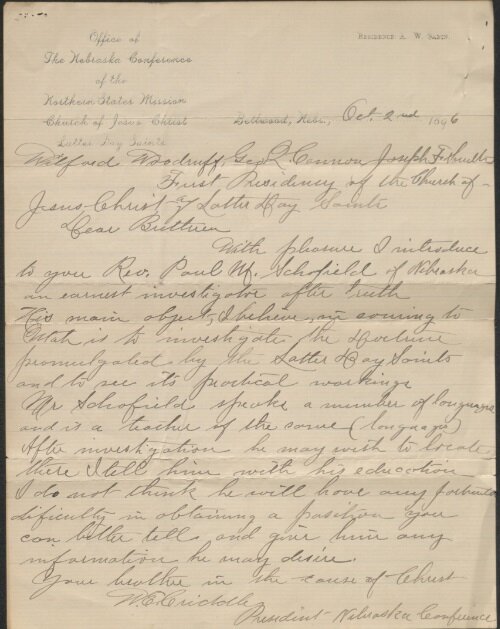 Office of
The Nebraska Conference
of the
Northern States Mission
Church of Jesus Christ
Latter Day Saints
Residence A. W.
Nebr., Oct. 2nd 1896
Wilford Woodruff, Geo Q Cannon Joseph F. Smith
First Presidency of the Church of
Jesus Christ of Latter Day Saints
Dear Brethren
With pleasure I introduce
to you Rev. Paul M. Schofield of Nebraska
an earnest investigator after truth
His main object, I believe, in coming to
Utah is to investigate the Doctrine
promulgated by the Latter Day Saints
and to see its practical workings
Mr Schofield speaks a number of languages
and is a teacher of the same (languages)
After investigation he may wish to locate
there I tell him with his education
I do not think he will have any particular
dificulty in obtaining a position you
can better tell, and give him any
information he may desire.
Your brother in the cause of Christ
W. C. Criddle
President Nebraska Conference